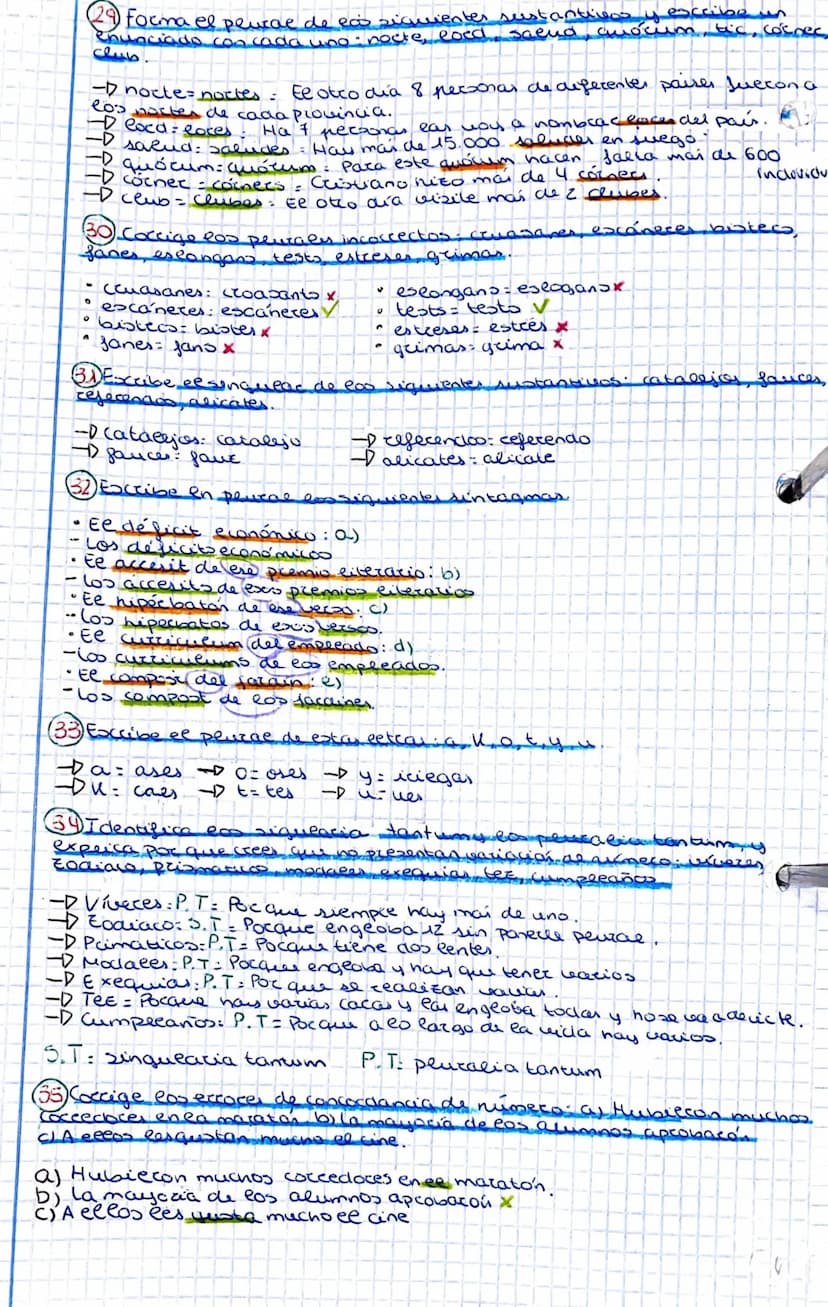 29 Forma el plural de los siguientes sustantivos y escribe un
enunciado con cada uno: norte, lord, salud, quórum, tic, córner,
club.
→ norte = nortes : El otro día 8 personas de diferentes países fueron a
los nortes de cada provincia.
→ lord = lores : Ha 7 personas las voy a nombrar lores del país.
→ salud = saludes : Hay más de 15.000 saludes en juego.
→ quórum = quórum : Para este quórum hacen falta más de 600
individu
→ córner = córners = Cristiano hizo más de 4 córners.
→ club = clubes : El otro día visite más de 2 clubes.
30 Corrige los plurales incorrectos: cruasanes, escáneres, bistecs,
fanes, eslongans, tests, estreses, grimas.
• cruasanes: croasants x • eslongans: eslogans x
• escáneres: escáneres ✓ • tests = tests ✓
• bistecs = bistes x • estreses = estrés x
• fanes = fans x • grimas = grima x
31 Escribe el singular de los siguientes sustantivos: catalejos, fauces,
referendos, alicates.
→ catalejos: catalejo → referendos: referendo
→ fauces: fauz → alicates = alicate
32 Escribe en plural los siguientes sintagmas
• El déficit económico : a)
- Los déficits económicos
• El accesit de ese premio literario : b)
- Los accesits de esos premios literarios
• El hipérbaton de ese verso. c)
- Los hiperbatos de esos versos.
• El curriculum del empleado : d)
- Los curriculums de los empleados.
• El compost del jardín : e)
- Los compost de los jardines.
33 Escribe el plural de estas letras: a, k, o, t, y, u.
→ a = ases → o = oses → y = iciegas
→ k = caes → t = tes → u = ues
34 Identifica los singularia tantum y los pluralia tantum, y
explica por que crees que no presentan variación de número: víveres,
zodiaco, prismáticos, modales, exequias, tez, cumpleaños
→ Víveres : P.T = Porque siempre hay mas de uno.
→ Zodiaco: S.T = Porque engloba 12 sin ponerle plural.
→ Primáticos = P.T = Porque tiene dos lentes.
→ Modales : P.T = Porque engloba y hay que tener varios
→ Exequias : P.T = Por que se realizan varias.
→ Tez = Porque hay varias caras y las engloba todas y no se va a decir te.
→ Cumpleaños : P.T = Porque a lo largo de la vida hay varios.
S.T : singularia tantum P.T: pluralia tantum
35 Corrige los errores de concordancia de número: a) Hubieron muchos
corredores en la maratón b) La mayoría de los alumnos aprobarón
c) A ellos les gustan mucho el cine.
a) Hubieron muchos corredores en el maratón.
b) La mayoría de los alumnos aprobarón x
c) A ellos les gusta mucho el cine